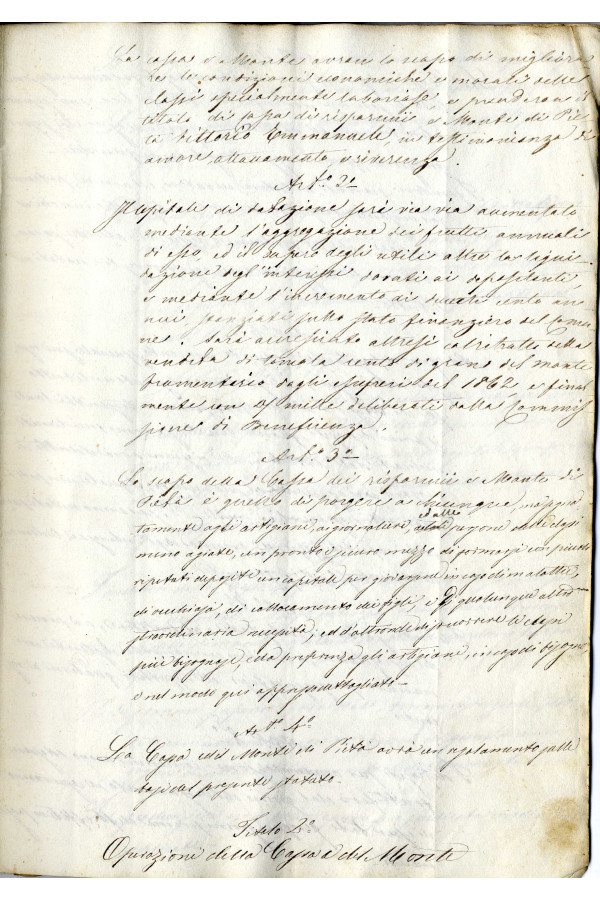 La cassa e Monte avran lo scopo di migliora-
re le condizioni economiche e morali delle
classi specialmente laboriose, e prenderan il
titolo di Cassa di risparmii, e Monte di Pie-
tà Vittorio Emmanuele, in testimonianza di
amore, attaccamento, e riverenza.
Art.º 2º
Il capitale di dotazione sarà via via aumentato
mediante l'aggregazione dei frutti annuali
di esso, ed il supero degli utili oltre la liqui-
dazione degl'interessi dovuti ai depositanti,
e mediante l'incremento di ducati cento an-
nui, sanzionati sullo stato finanziero del Comu-
ne. Sarà accresciuto altresì col ritratto della
vendita di tomola cento di grano del monte
frumentario dagli esuperi del 1862, e final-
mente con mille deliberati dalla Commis-
sione di Beneficenza.
Art.º 3º
Lo scopo della Cassa dei risparmii e Monte di
Pietà è quello di porgere a chiunque, ma segna-
tamente agli artigiani, ai giornalieri, ed alle persone delle classi
meno agiate, un pronto e sicuro mezzo di formarsi con piccoli
ripetuti depositi un capitale per giovarsene in caso di malattie,
di vecchiaja, di collocamento dei figli, e di qualunque altra
straordinaria necessità; ed d'altronde di soccorrere le classi
più bisognose, e da preferenza gli artigiani, in caso di bisogno,
e nel modo quì appresso dettagliato.
Art.º 4º
La Cassa e del Monte di Pietà avrà un regolamento sulle
basi del presente statuto.
Titolo 2º
Operazione della Cassa e del Monte